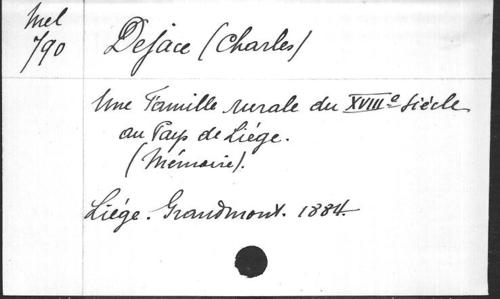 Mel
790
Dejace (Charles)
Une Famille rurale du XVIIIe Siècle
au Pays de Liége.
(Mémoire).
Liége. Grandmont. 1884.